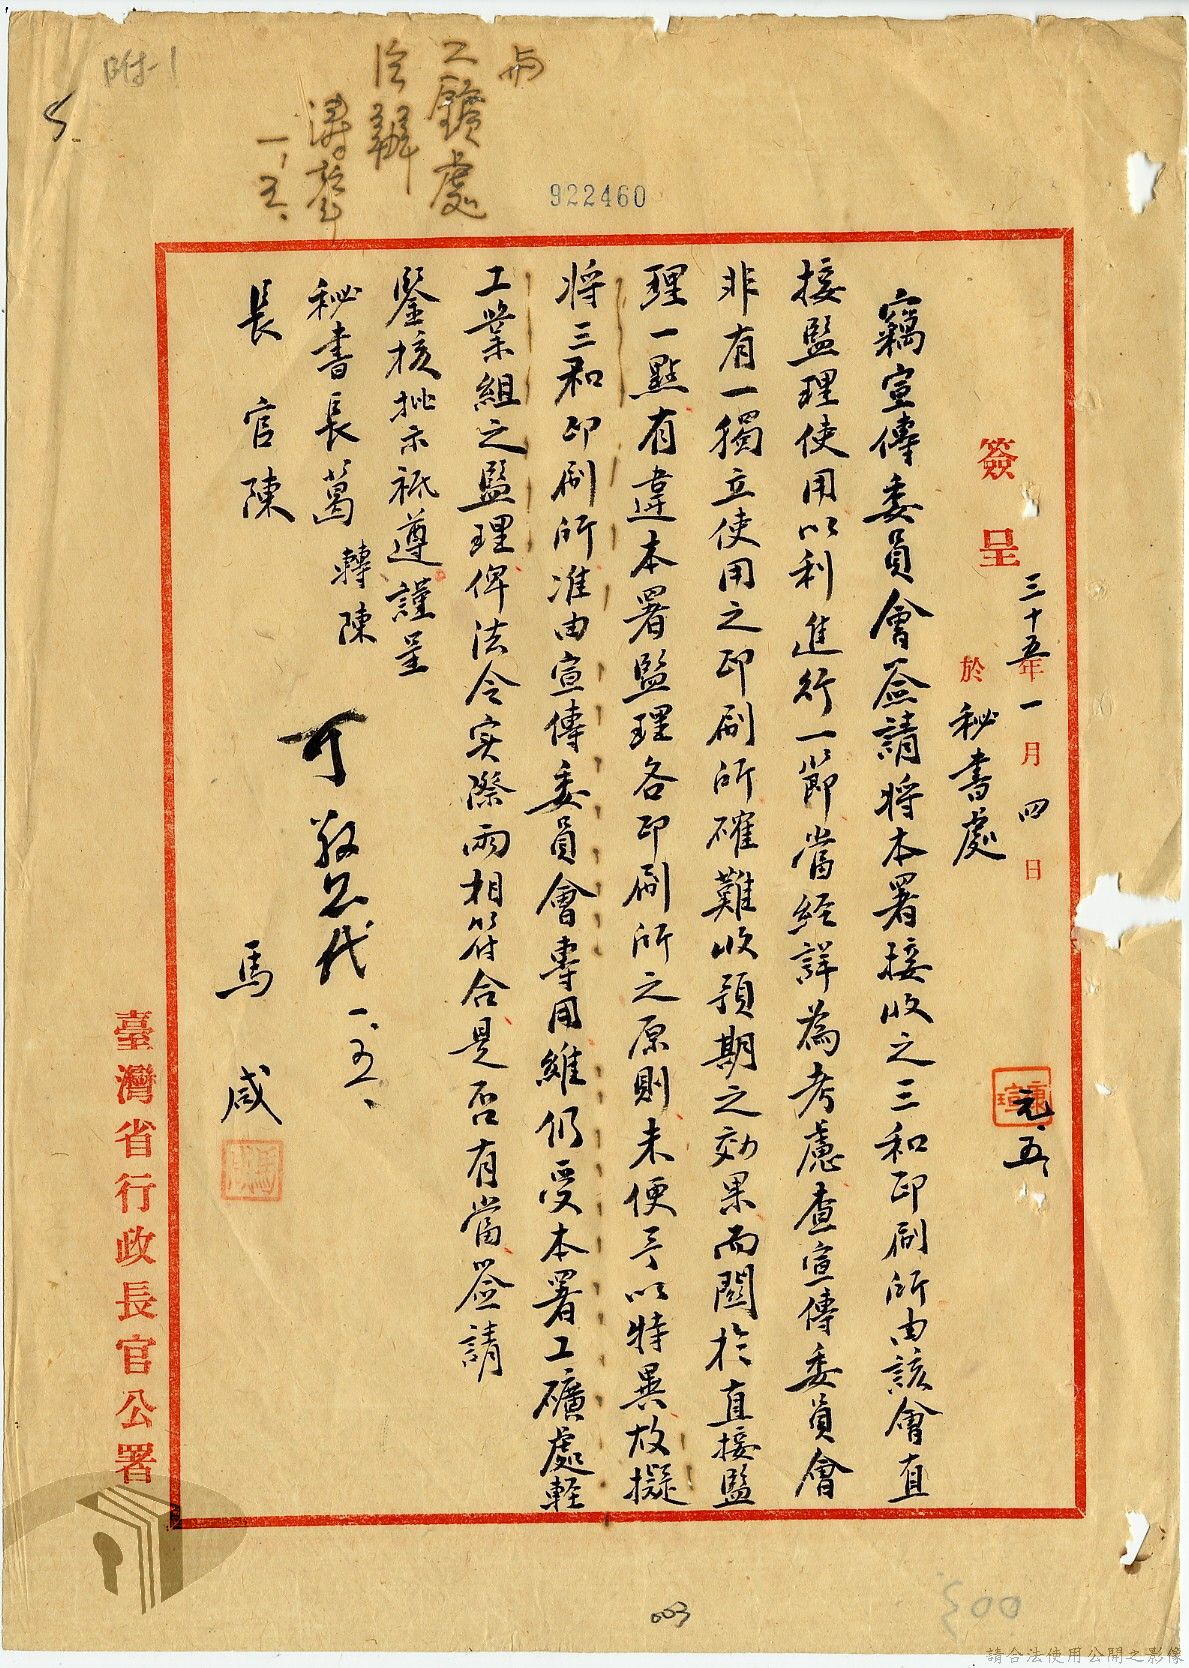 附-1
5
工鑛處
洽辦
一、五、
922460
簽呈
三十五年一月四日
於秘書處
元、五、
竊宣傳委員會簽請將本署接收之三和印刷所由該會直
接監理使用以利進行一節當經詳為考慮查宣傳委員會
非有一獨立使用之印刷所確難收預期之効果而關於直接監
理一點有違本署監理各印刷所之原則未便予以特異故擬
將三和印刷所准由宣傳委員會專用維仍受本署工礦處輕
工業組之監理俾法令实際兩相符合是否有當簽請
鑒核批示祗遵謹呈
秘書長葛 轉陳
長官陳
可
敬恩代 一、五、
馬 咸
臺灣省行政長官公署
003
003
請合法使用公開之影像